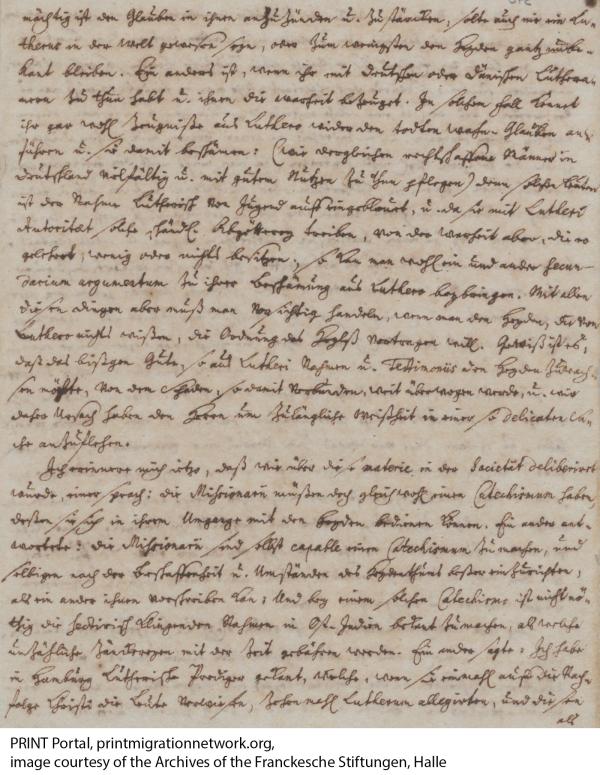 mächtig ist den Glauben in ihnen anzuzünden u. zu stärcken, solte auch nie ein Lu-
therus in der Welt gewesen seyn, oder zum wenigsten den Heyden gantz unbe-
kant bleiben. Ein anders ist, wenn ihr mit deutschen oder dänischen Luthera-
nern zu thun habt u. ihnen die warheit bezeuget. In solchem fall könnet
ihr gar wohl Zeugniße aus Luthero wider den todten Glauben an-
führen u. sie damit beschämen: (wie dergleichen rechtschaffene Männer in
Deutschland vielfältig u. mit gutem Nutzen zu thun pflegen) denn
ist der Nahme Lutherisch von Jugend auff eingebläuet, u. da sie mit Lutheri
Autorität solche schändl. Abgötterey treiben, von der warheit aber, die er
gelehret, wenig oder nichts besitzen, so kan man wohl ein und ander secun-
darium argumentum zu ihrer Beschämung aus Luthero beybringen. Mit allen
diesen dingen aber muß man vorsichtig handeln, wenn man den Heyden, die von
Luthero nichts wißen, die Ordnung des Heylß vortragen will. Gewiß ist es,
daß das bißgen Gute, so aus Lutheri Nahmen u. Testimoniis den Heyden zuwach-
sen möchte, von dem Schaden, so damit verbunden, weit überwogen werde, u. wir
daher Ursach haben den Herrn um zulängliche Weißheit in einer so delicaten Sa-
che anzuflehen.
Ich erinnere mich itzo, daß wie über diese materie in der Societät deliberiret
wurde, einer sprach: die Missionarii müßen doch gleichwohl einen Catechismum haben,
deßen sie sich in ihrem Umgange mit den Heyden bedienen können. Ein ander ant-
wortete: die Missionarii sind selbst capable einen Catechismum zu machen, und
selbigen nach der Beschaffenheit u. Umständen des Heydenthums beßer einzurichten,
als ein ander ihnen vorschreiben kan; Und bey einem solchen Catechismo ist nicht nö-
thig die sectirisch klingenden Nahmen in Ost-Indien bekant zu machen, als welche
unzählige Zänckereyen mit der Zeit gebähren werden. Ein ander sagte: Ich habe
in Hamburg Lutherische Prediger gekant, welche, wenn sie einmahl auf die Nach-
folge Christi die Leute verwiesen, zehenmahl Lutherum allegirten, und diesen
als
PRINT Portal, printmigrationnetwork.org,
image courtesy of the Archives of the Franckesche Stiftungen, Halle